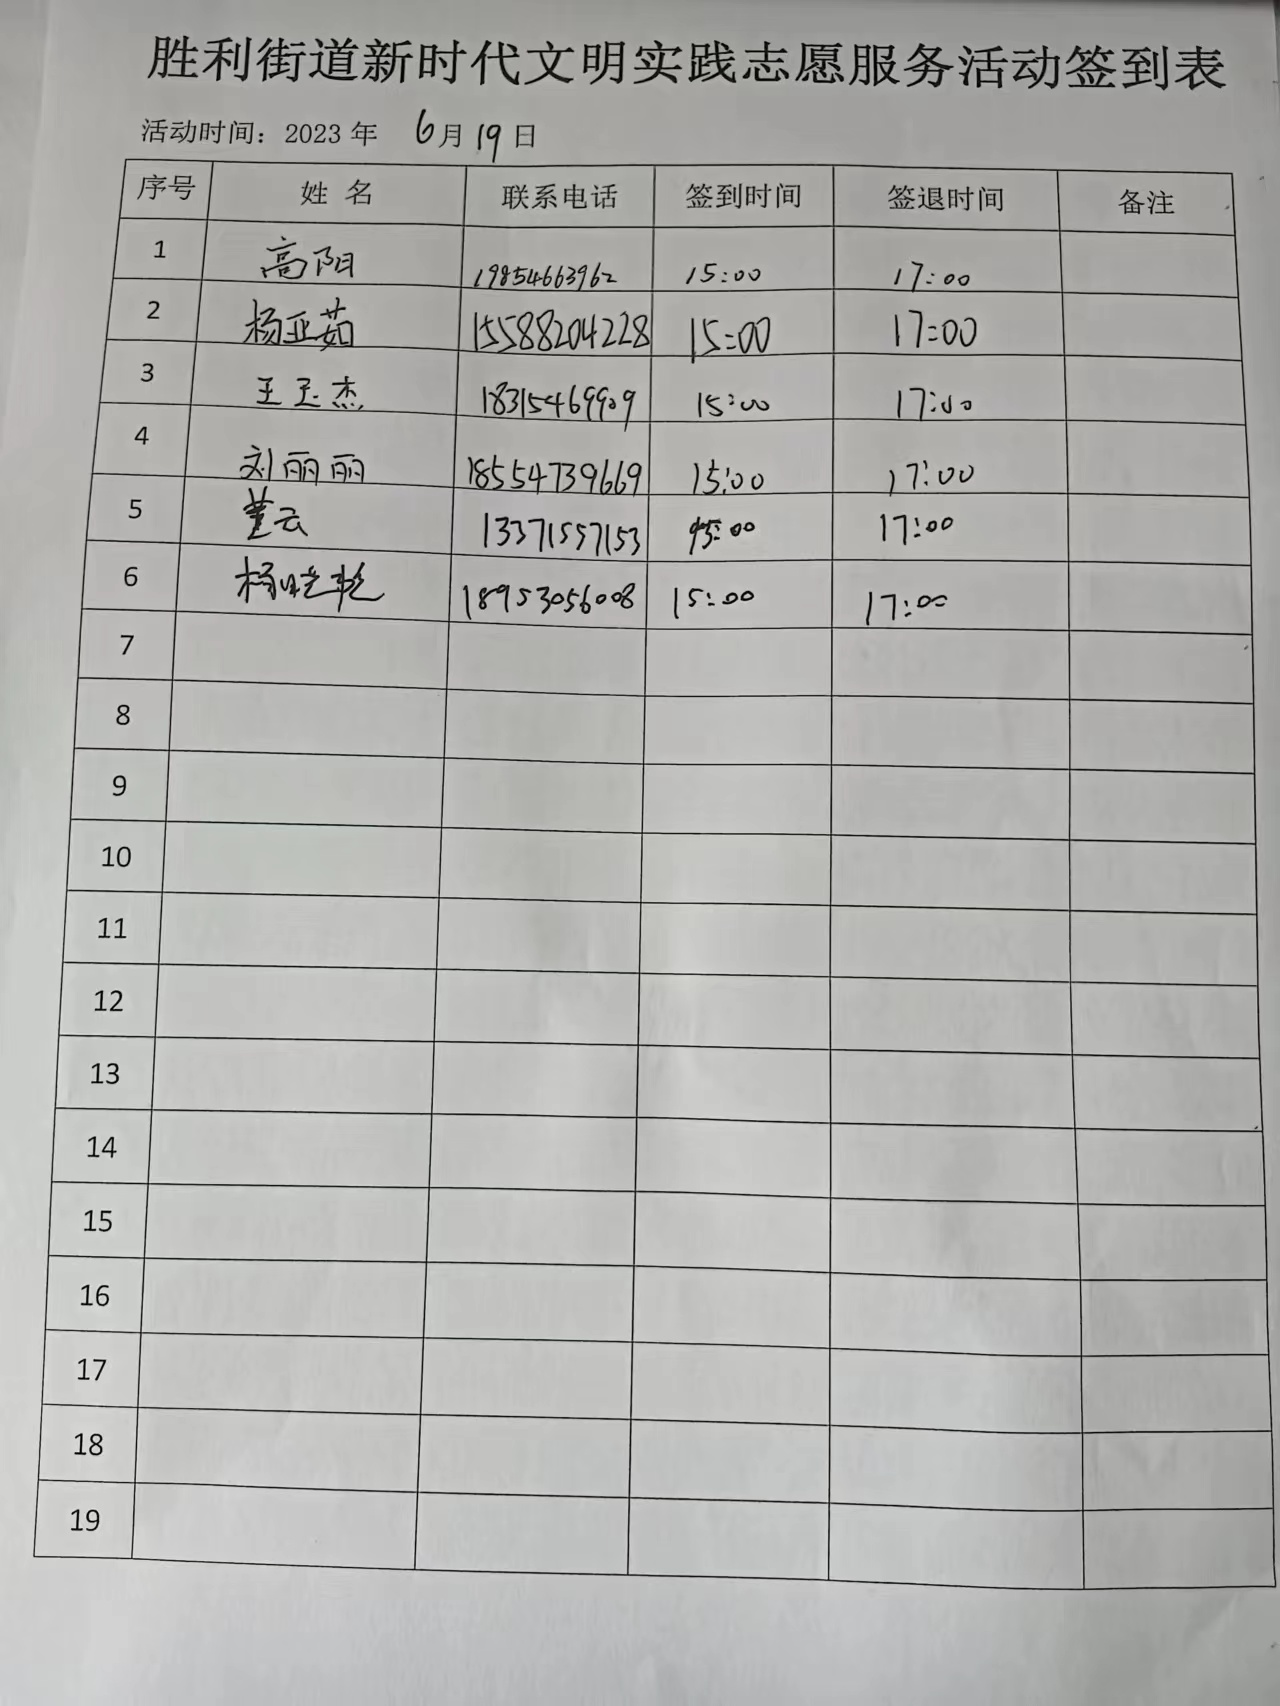 胜利街道新时代文明实践志愿服务活动签到表
活动时间：2023 年 6月19日
序号 姓 名 联系电话 签到时间 签退时间 备注
1 高阳 19854663962 15:00 17:00
2 杨亚茹 15588204228 15:00 17:00
3 王玉杰 18315469909 15:00 17:00
4 刘丽丽 18554739669 15:00 17:00
5 董云 13371557153 15:00 17:00
6 杨晓艳 18953056008 15:00 17:00
7
8
9
10
11
12
13
14
15
16
17
18
19